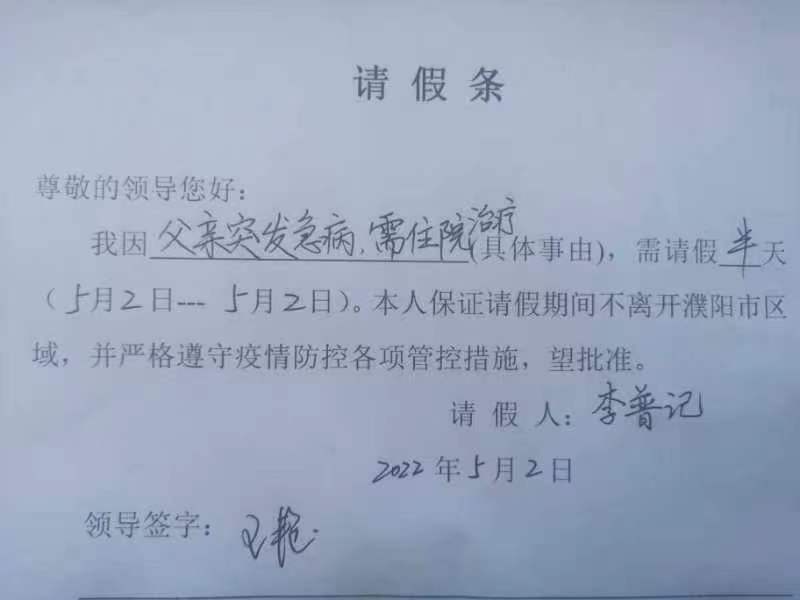 请假条
尊敬的领导您好：
我因父亲突发急病，需住院治疗(具体事由)，需请假半天
（5月2日---5月2日）。本人保证请假期间不离开濮阳市区
域，并严格遵守疫情防控各项管控措施，望批准。
请 假 人：李普记
2022年5月2日
领导签字：王艳